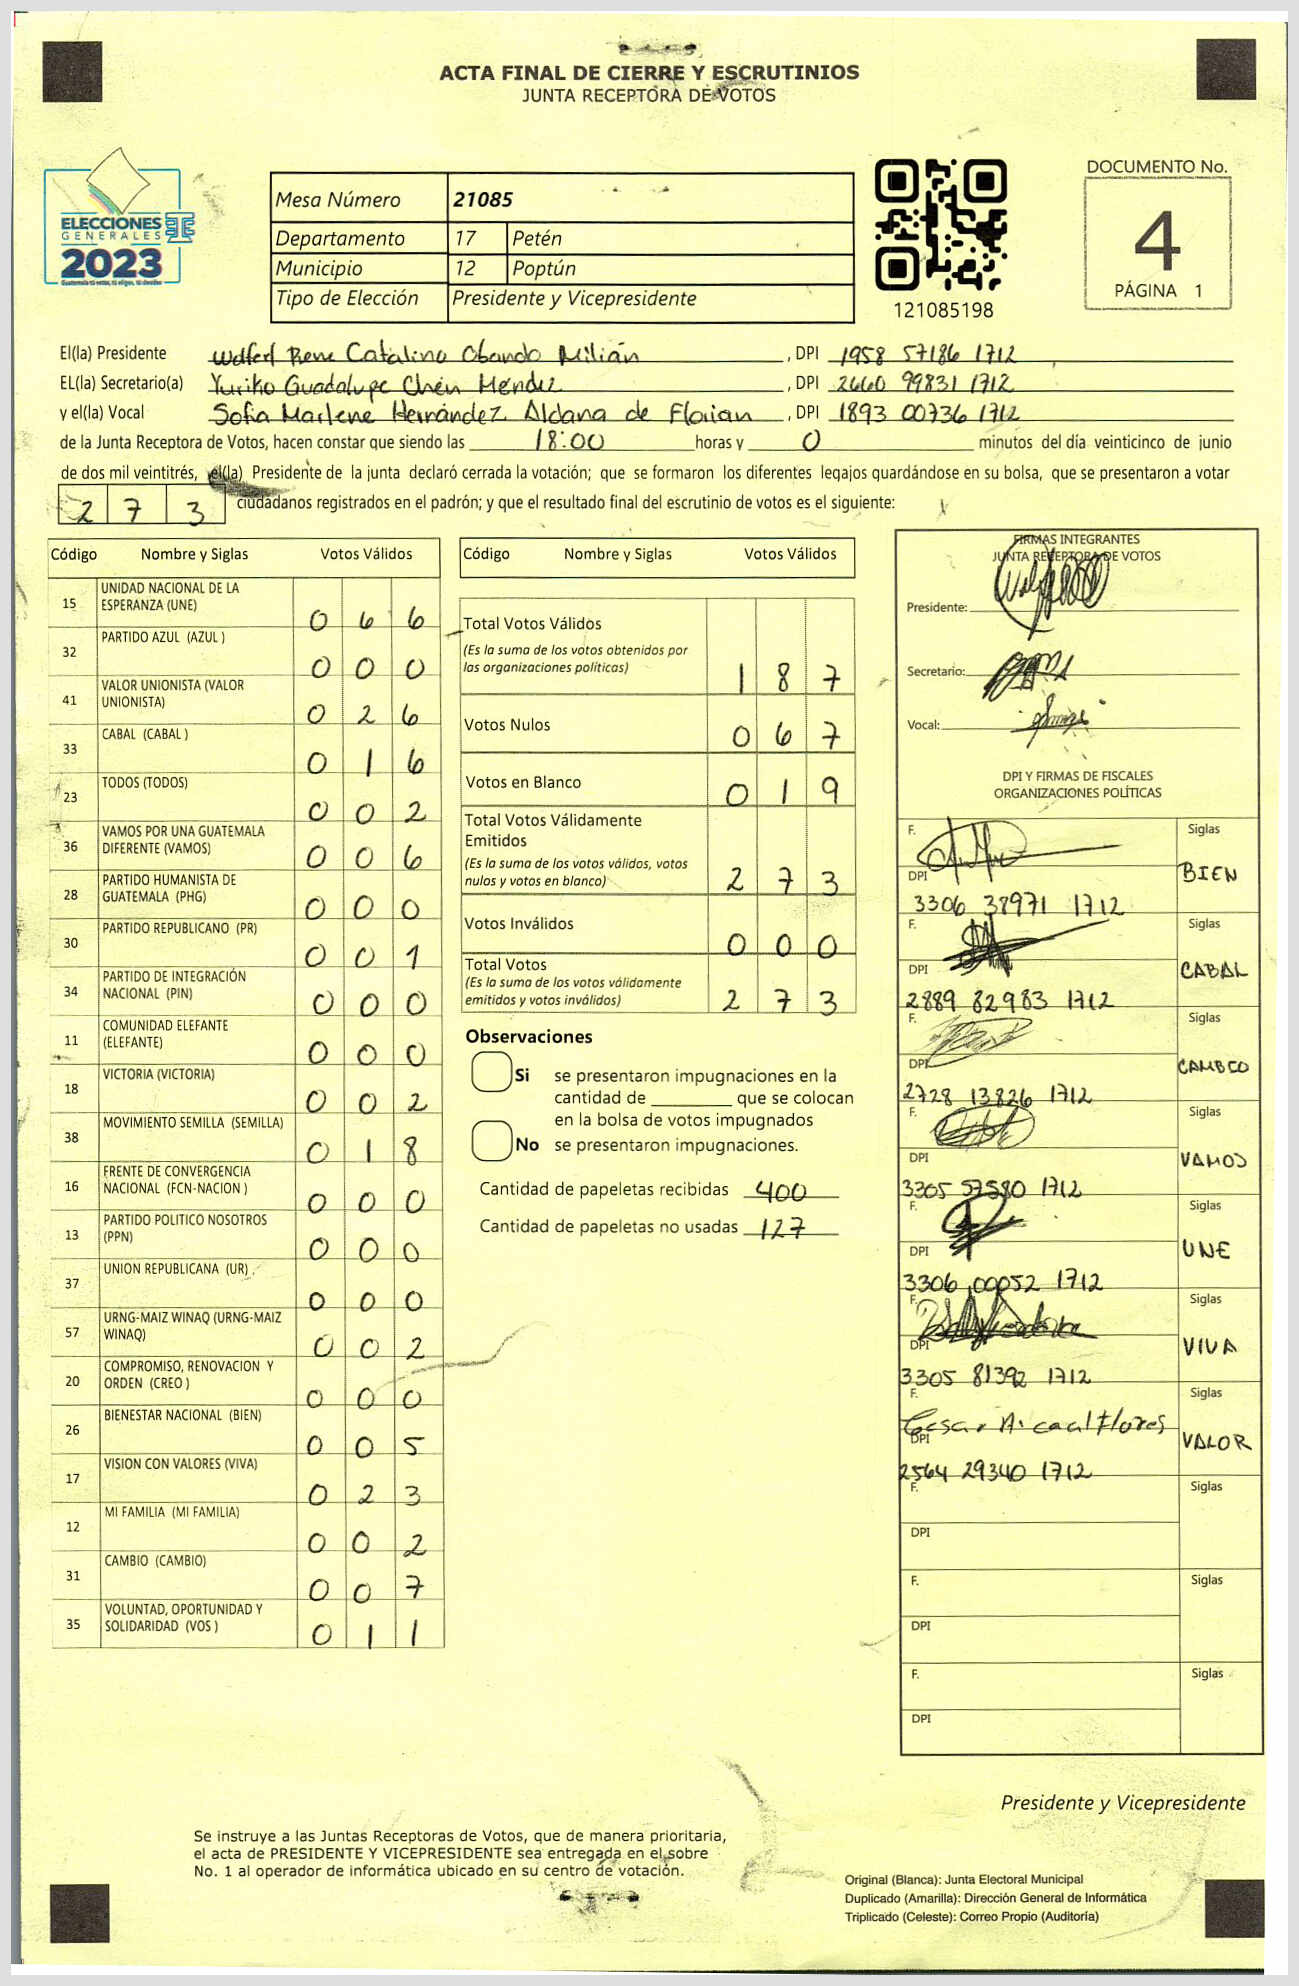 ACTA FINAL DE CIERRE Y ESCRUTINIOS
JUNTA RECEPTORA DE VOTOS
ELECCIONES
GENERALES
2023
Mesa Número 21085
Departamento 17 Petén
Municipio 12 Poptún
Tipo de Elección Presidente y Vicepresidente
121085198
DOCUMENTO No.
4
PÁGINA 1
El(la) Presidente Rene Catalino Obando Milián , DPI 1958 57186 1712
EL(la) Secretario(a) Yuriko Guadalupe Chén Méndez , DPI 2660 99831 1712
y el(la) Vocal Sofia Marlene Hernández Aldana de Florian , DPI 1893 00736 1712
de la Junta Receptora de Votos, hacen constar que siendo las 18:00 horas y 0 minutos del día veinticinco de junio
de dos mil veintitrés, el(la) Presidente de la junta declaró cerrada la votación; que se formaron los diferentes legajos guardándose en su bolsa, que se presentaron a votar
2 7 3 ciudadanos registrados en el padrón; y que el resultado final del escrutinio de votos es el siguiente:
Código Nombre y Siglas Votos Válidos
15 UNIDAD NACIONAL DE LA
ESPERANZA (UNE) 0 6 6
32 PARTIDO AZUL (AZUL ) 0 0 0
41 VALOR UNIONISTA (VALOR
UNIONISTA) 0 2 6
33 CABAL (CABAL ) 0 1 6
23 TODOS (TODOS) 0 0 2
36 VAMOS POR UNA GUATEMALA
DIFERENTE (VAMOS) 0 0 6
28 PARTIDO HUMANISTA DE
GUATEMALA (PHG) 0 0 0
30 PARTIDO REPUBLICANO (PR) 0 0 1
34 PARTIDO DE INTEGRACIÓN
NACIONAL (PIN) 0 0 0
11 COMUNIDAD ELEFANTE
(ELEFANTE) 0 0 0
18 VICTORIA (VICTORIA) 0 0 2
38 MOVIMIENTO SEMILLA (SEMILLA) 0 1 8
16 FRENTE DE CONVERGENCIA
NACIONAL (FCN-NACION ) 0 0 0
13 PARTIDO POLITICO NOSOTROS
(PPN) 0 0 0
37 UNION REPUBLICANA (UR) 0 0 0
57 URNG-MAIZ WINAQ (URNG-MAIZ
WINAQ) 0 0 2
20 COMPROMISO, RENOVACION Y
ORDEN (CREO ) 0 0 0
26 BIENESTAR NACIONAL (BIEN) 0 0 5
17 VISION CON VALORES (VIVA) 0 2 3
12 MI FAMILIA (MI FAMILIA) 0 0 2
31 CAMBIO (CAMBIO) 0 0 7
35 VOLUNTAD, OPORTUNIDAD Y
SOLIDARIDAD (VOS ) 0 1 1
Código Nombre y Siglas Votos Válidos
Total Votos Válidos
(Es la suma de los votos obtenidos por
las organizaciones políticas) 1 8 7
Votos Nulos 0 6 7
Votos en Blanco 0 1 9
Total Votos Válidamente
Emitidos
(Es la suma de los votos válidos, votos
nulos y votos en blanco) 2 7 3
Votos Inválidos 0 0 0
Total Votos
(Es la suma de los votos válidamente
emitidos y votos inválidos) 2 7 3
Observaciones
Si se presentaron impugnaciones en la
cantidad de ________ que se colocan
en la bolsa de votos impugnados
No se presentaron impugnaciones.
Cantidad de papeletas recibidas 400
Cantidad de papeletas no usadas 127
FIRMAS INTEGRANTES
JUNTA RECEPTORA DE VOTOS
Presidente:
Secretario:
Vocal:
DPI Y FIRMAS DE FISCALES
ORGANIZACIONES POLÍTICAS
F. Siglas
DPI BIEN
3306 38971 1712
F. Siglas
DPI CABAL
2889 82983 1712
F. Siglas
DPI CAMBIO
2728 13826 1712
F. Siglas
DPI VAMOS
3305 57580 1712
F. Siglas
DPI UNE
3306 00052 1712
F. Siglas
DPI VIVA
3305 81392 1712
F. Siglas
Cesar A. caal Flores
DPI VALOR
2564 29340 1712
F. Siglas
DPI
F. Siglas
DPI
F. Siglas
DPI
Presidente y Vicepresidente
Se instruye a las Juntas Receptoras de Votos, que de manera prioritaria,
el acta de PRESIDENTE Y VICEPRESIDENTE sea entregada en el sobre
No. 1 al operador de informática ubicado en su centro de votación.
Original (Blanca): Junta Electoral Municipal
Duplicado (Amarilla): Dirección General de Informática
Triplicado (Celeste): Correo Propio (Auditoría)